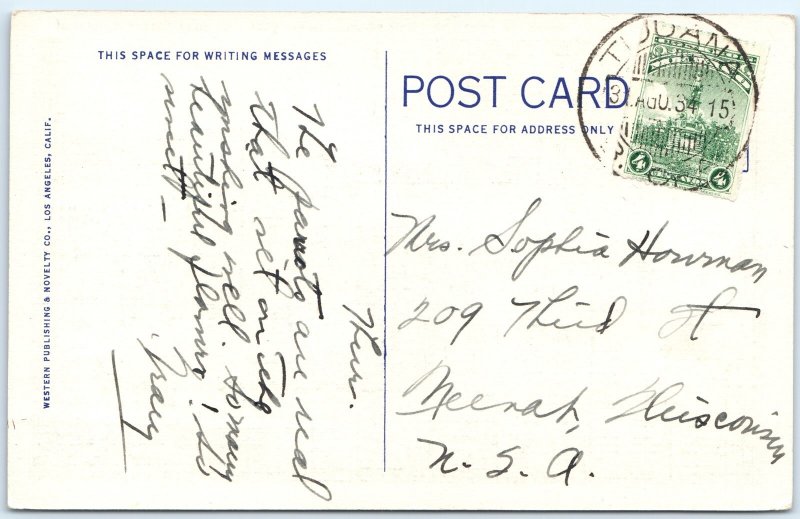 THIS SPACE FOR WRITING MESSAGES
Thur.
The parrots are real
that sit on the
wishing well. So many
beautiful flowers! So
sweet —
Tracy
WESTERN PUBLISHING & NOVELTY CO., LOS ANGELES, CALIF.
POST CARD
THIS SPACE FOR ADDRESS ONLY
TIJUANA
31 AGO. 34 15
4 4
Mrs. Sophia Howman
209 Third St
Neenah, Wisconsin
U. S. A.